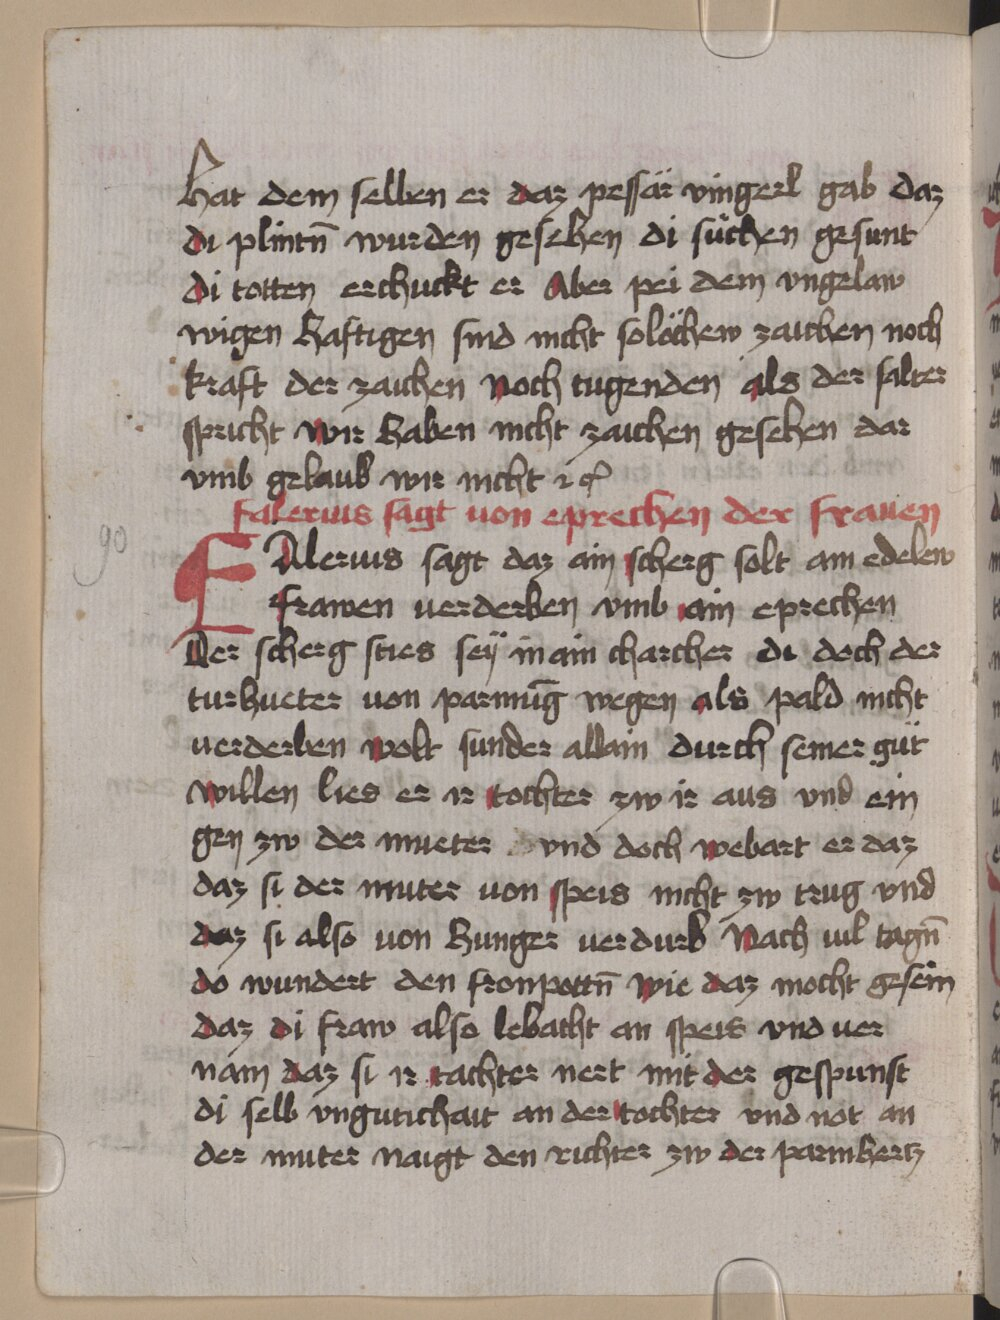 hat dem selben er daz pessär vingerl gab daz
di plintn̄ wurden gesehen di süchen gesunt
di totten erchuckt er Aber pei dem vngelaw
wigen haftigen sind nicht solöchew zaichen noch
kraft der zaichen Noch tugenden als der salter
spricht wir haben nicht zaichen gesehen dar
vmb gelaub wir nicht ꝛ c̄
Falerius sagt uon eprechen der frauen
90
FAlerius sagt daz ain scherg solt ain edelew
frawen uerderben vmb ain eprechen
Der scherg sties seÿ in ain charcher di doch der
turhueter uon parmuḡ wegen als pald nicht
uerderben wolt sunder allain durch seiner güt
willen lies er ir tochter zw ir aus vnd ein
gen zw der mueter vnd doch webart er daz
daz si der muter uon speis nicht zw trug vnd
daz si also uon hunger uerdurb Nach uil tagn̄
do wundert den fronpottn̄ wie daz mocht gesein
daz di fraw also lebacht an speis vnd uer
nam daz si ir tachter nert mit der gespunst
di selb vngutichait an der tochter vnd not an
der muter naigt den richter zw der parmhertz